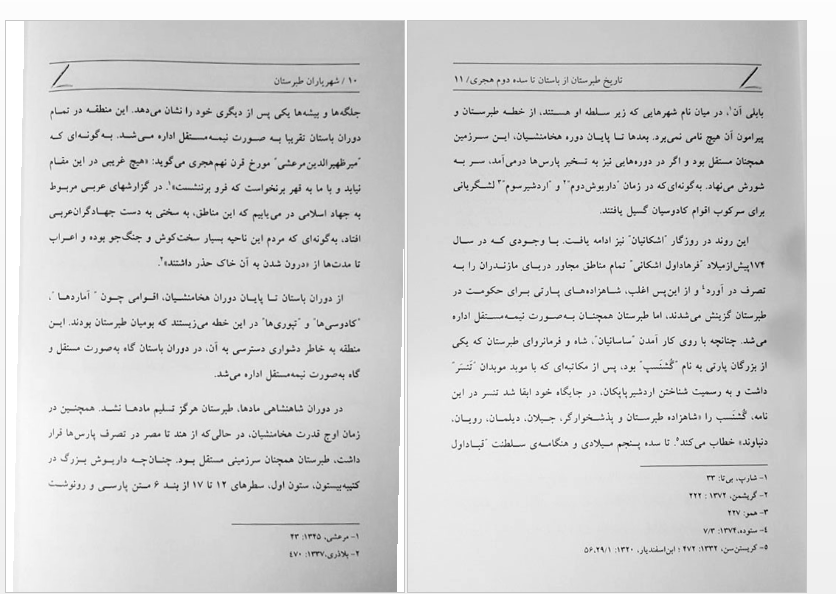 ۱۰ / شهریاران طبرستان
جلگه‌ها و بیشه‌ها یکی پس از دیگری خود را نشان می‌دهد. این منطقه در تمام
دوران باستان تقریبا به صورت نیمه‌مستقل اداره می‌شد. به‌گونه‌ای که
"میرظهیرالدین‌مرعشی" مورخ قرن نهم‌هجری می‌گوید: «هیچ غریبی در این مقام
نیاید و با ما به قهر برنخواست که فرو برننشست»۱. در گزارشهای عربی مربوط
به جهاد اسلامی در می‌یابیم که این مناطق، به سختی به دست جهادگران‌عربی
افتاد، به‌گونه‌ای که مردم این ناحیه بسیار سخت‌کوش و جنگ‌جو بوده و اعراب
تا مدت‌ها از «درون شدن به آن خاک حذر داشتند»۲.
از دوران باستان تا پایان دوران هخامنشیان، اقوامی چون " آماردها "،
"کادوسی‌ها" و "تپوری‌ها" در این خطه می‌زیستند که بومیان طبرستان بودند. این
منطقه به خاطر دشواری دسترسی به آن، در دوران باستان گاه به‌صورت مستقل و
گاه به‌صورت نیمه‌مستقل اداره می‌شد.
در دوران شاهنشاهی مادها، طبرستان هرگز تسلیم مادها نشد. همچنین در
زمان اوج قدرت هخامنشیان، در حالی‌که از هند تا مصر در تصرف پارس‌ها قرار
داشت، طبرستان همچنان سرزمینی مستقل بود. چنان‌چه داریوش بزرگ در
کتیبه‌بیستون، ستون اول، سطرهای ۱۲ تا ۱۷ از بند ۶ متن پارسی و رونوشت
۱- مرعشی، ۱۳۴۵: ۲۳
۲- بلاذری،۱۳۳۷: ۴۷۰
تاریخ طبرستان از باستان تا سده دوم هجری/ ۱۱
بابلی آن۱، در میان نام شهرهایی که زیر سلطه او هستند، از خطه طبرستان و
پیرامون آن هیچ نامی نمی‌برد. بعدها تا پایان دوره هخامنشیان، این سرزمین
همچنان مستقل بود و اگر در دوره‌هایی نیز به تسخیر پارس‌ها درمی‌آمد، سر به
شورش می‌نهاد. به‌گونه‌ای‌که در زمان "داریوش‌دوم"۲ و "اردشیرسوم"۳ لشگریانی
برای سرکوب اقوام کادوسیان گسیل یافتند.
این روند در روزگار "اشکانیان" نیز ادامه یافت. با وجودی که در سال
۱۷۴پیش‌ازمیلاد "فرهاداول اشکانی" تمام مناطق مجاور دریای مازندران را به
تصرف در آورد۴ و از این‌پس اغلب، شاهزاده‌های پارتی برای حکومت در
طبرستان گزینش می‌شدند، اما طبرستان همچنان به‌صورت نیمه‌مستقل اداره
می‌شد. چنانچه با روی کار آمدن "ساسانیان"، شاه و فرمانروای طبرستان که یکی
از بزرگان پارتی به نام "گُشنَسپ" بود، پس از مکاتبه‌ای که با موبد موبدان "تنسَر"
داشت و به رسمیت شناختن اردشیربابکان، در جایگاه خود ابقا شد تنسر در این
نامه، گُشنَسب را «شاهزاده طبرستان و پذشخوارگر، جیلان، دیلمان، رویان،
دنباوند» خطاب می‌کند۵. تا سده پنجم میلادی و هنگامه‌ی سلطنت "قباداول
۱- شارپ، بی‌تا: ۳۳
۲- گریشمن، ۱۳۷۲ : ۲۲۲
۳- همو: ۲۲۷
۴- ستوده،۱۳۷۴: ۷/۳
۵- کریستن‌سن، ۱۳۳۲: ۴۷۲ ؛ ابن‌اسفندیار، ۱۳۲۰: ۵۶،۲۹/۱